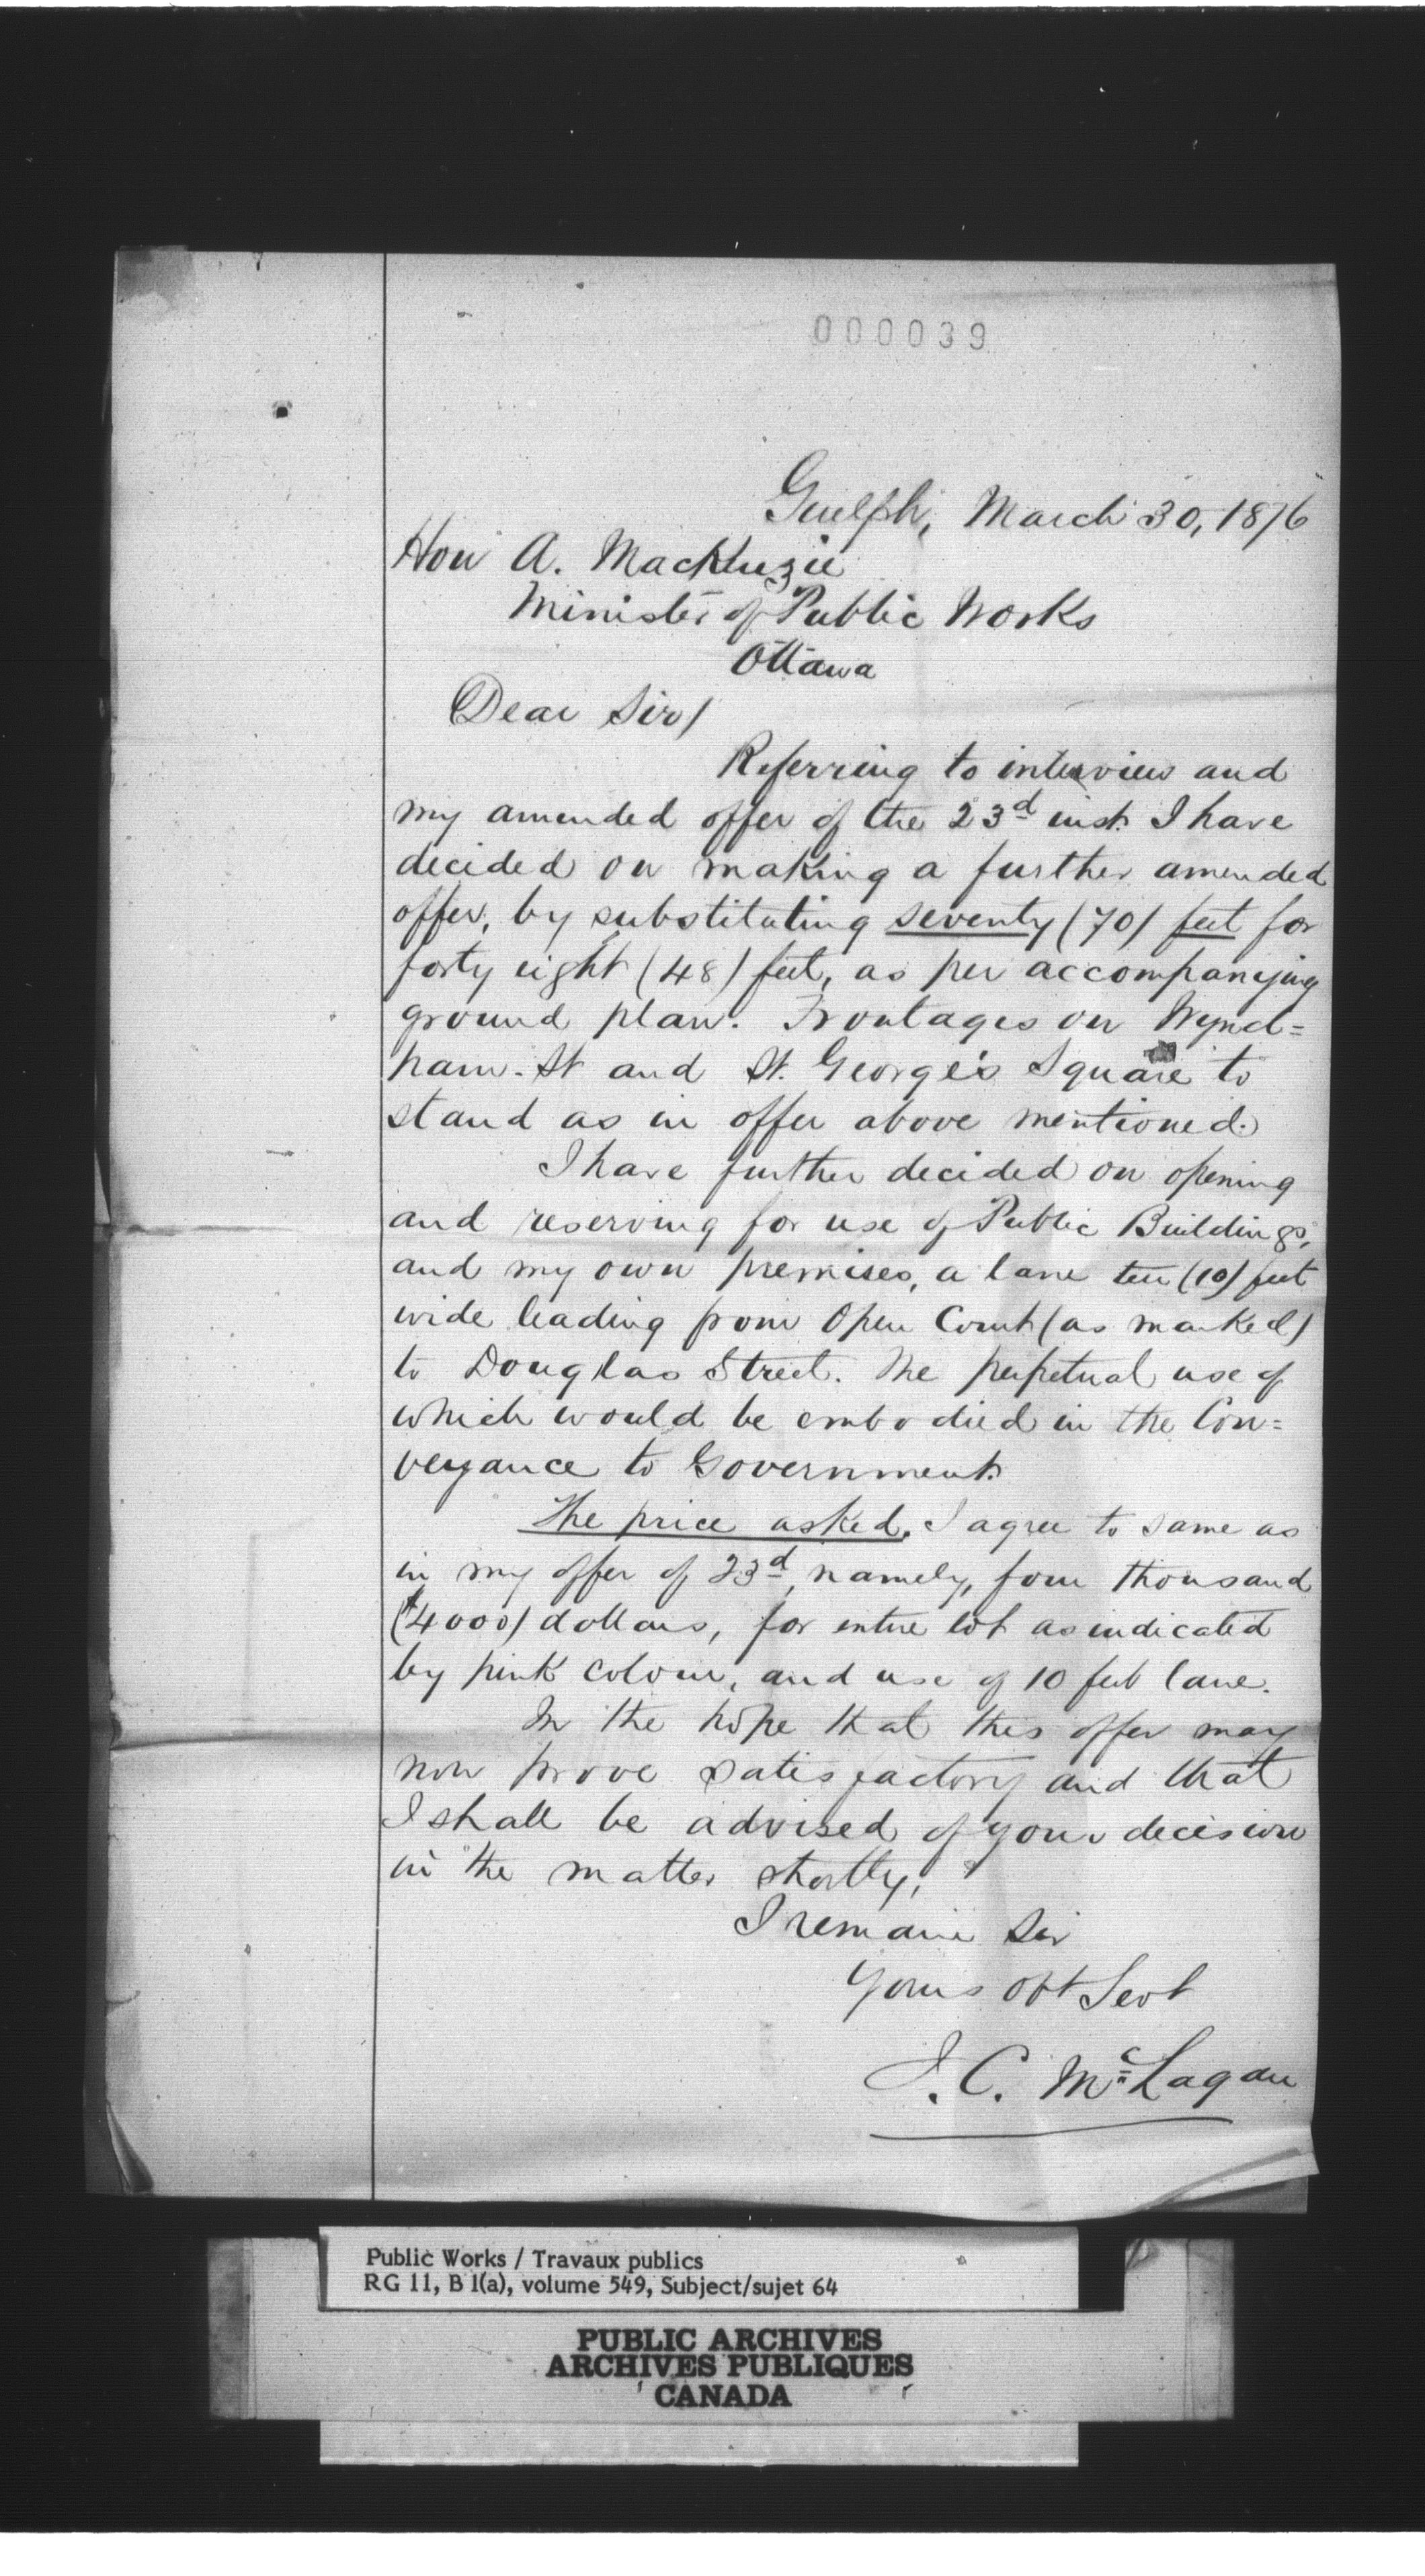 000039
Guelph, March 30, 1876
Hon A. MacKenzie
Minister of Public Works
Ottawa
Dear Sir/
Referring to interview and
my amended offer of the 23d inst. I have
decided on making a further amended
offer, by substituting seventy (70) feet for
forty eight (48) feet, as per accompanying
ground plan. Frontages on Wynd=
ham. St and St. George's Square to
stand as in offer above mentioned.
I have further decided on opening
and reserving for use of Public Buildings,
and my own premises, a lane ten (10) feet
wide leading from Open Court (as marked)
to Douglas Street. The perpetual use of
which would be embodied in the Con=
veyance to Government.
The price asked. I agree to same as
in my offer of 23d, namely, four thousand
($4000) dollars, for entire lot as indicated
by pink colour, and use of 10 feet lane.
In the hope that this offer may
now prove satisfactory and that
I shall be advised of your decision
in the matter shortly,
I remain Sir
Yours Obt Servt
J. C. McLagan
Public Works / Travaux publics
RG 11, B 1(a), volume 549, Subject/sujet 64
PUBLIC ARCHIVES
ARCHIVES PUBLIQUES
CANADA